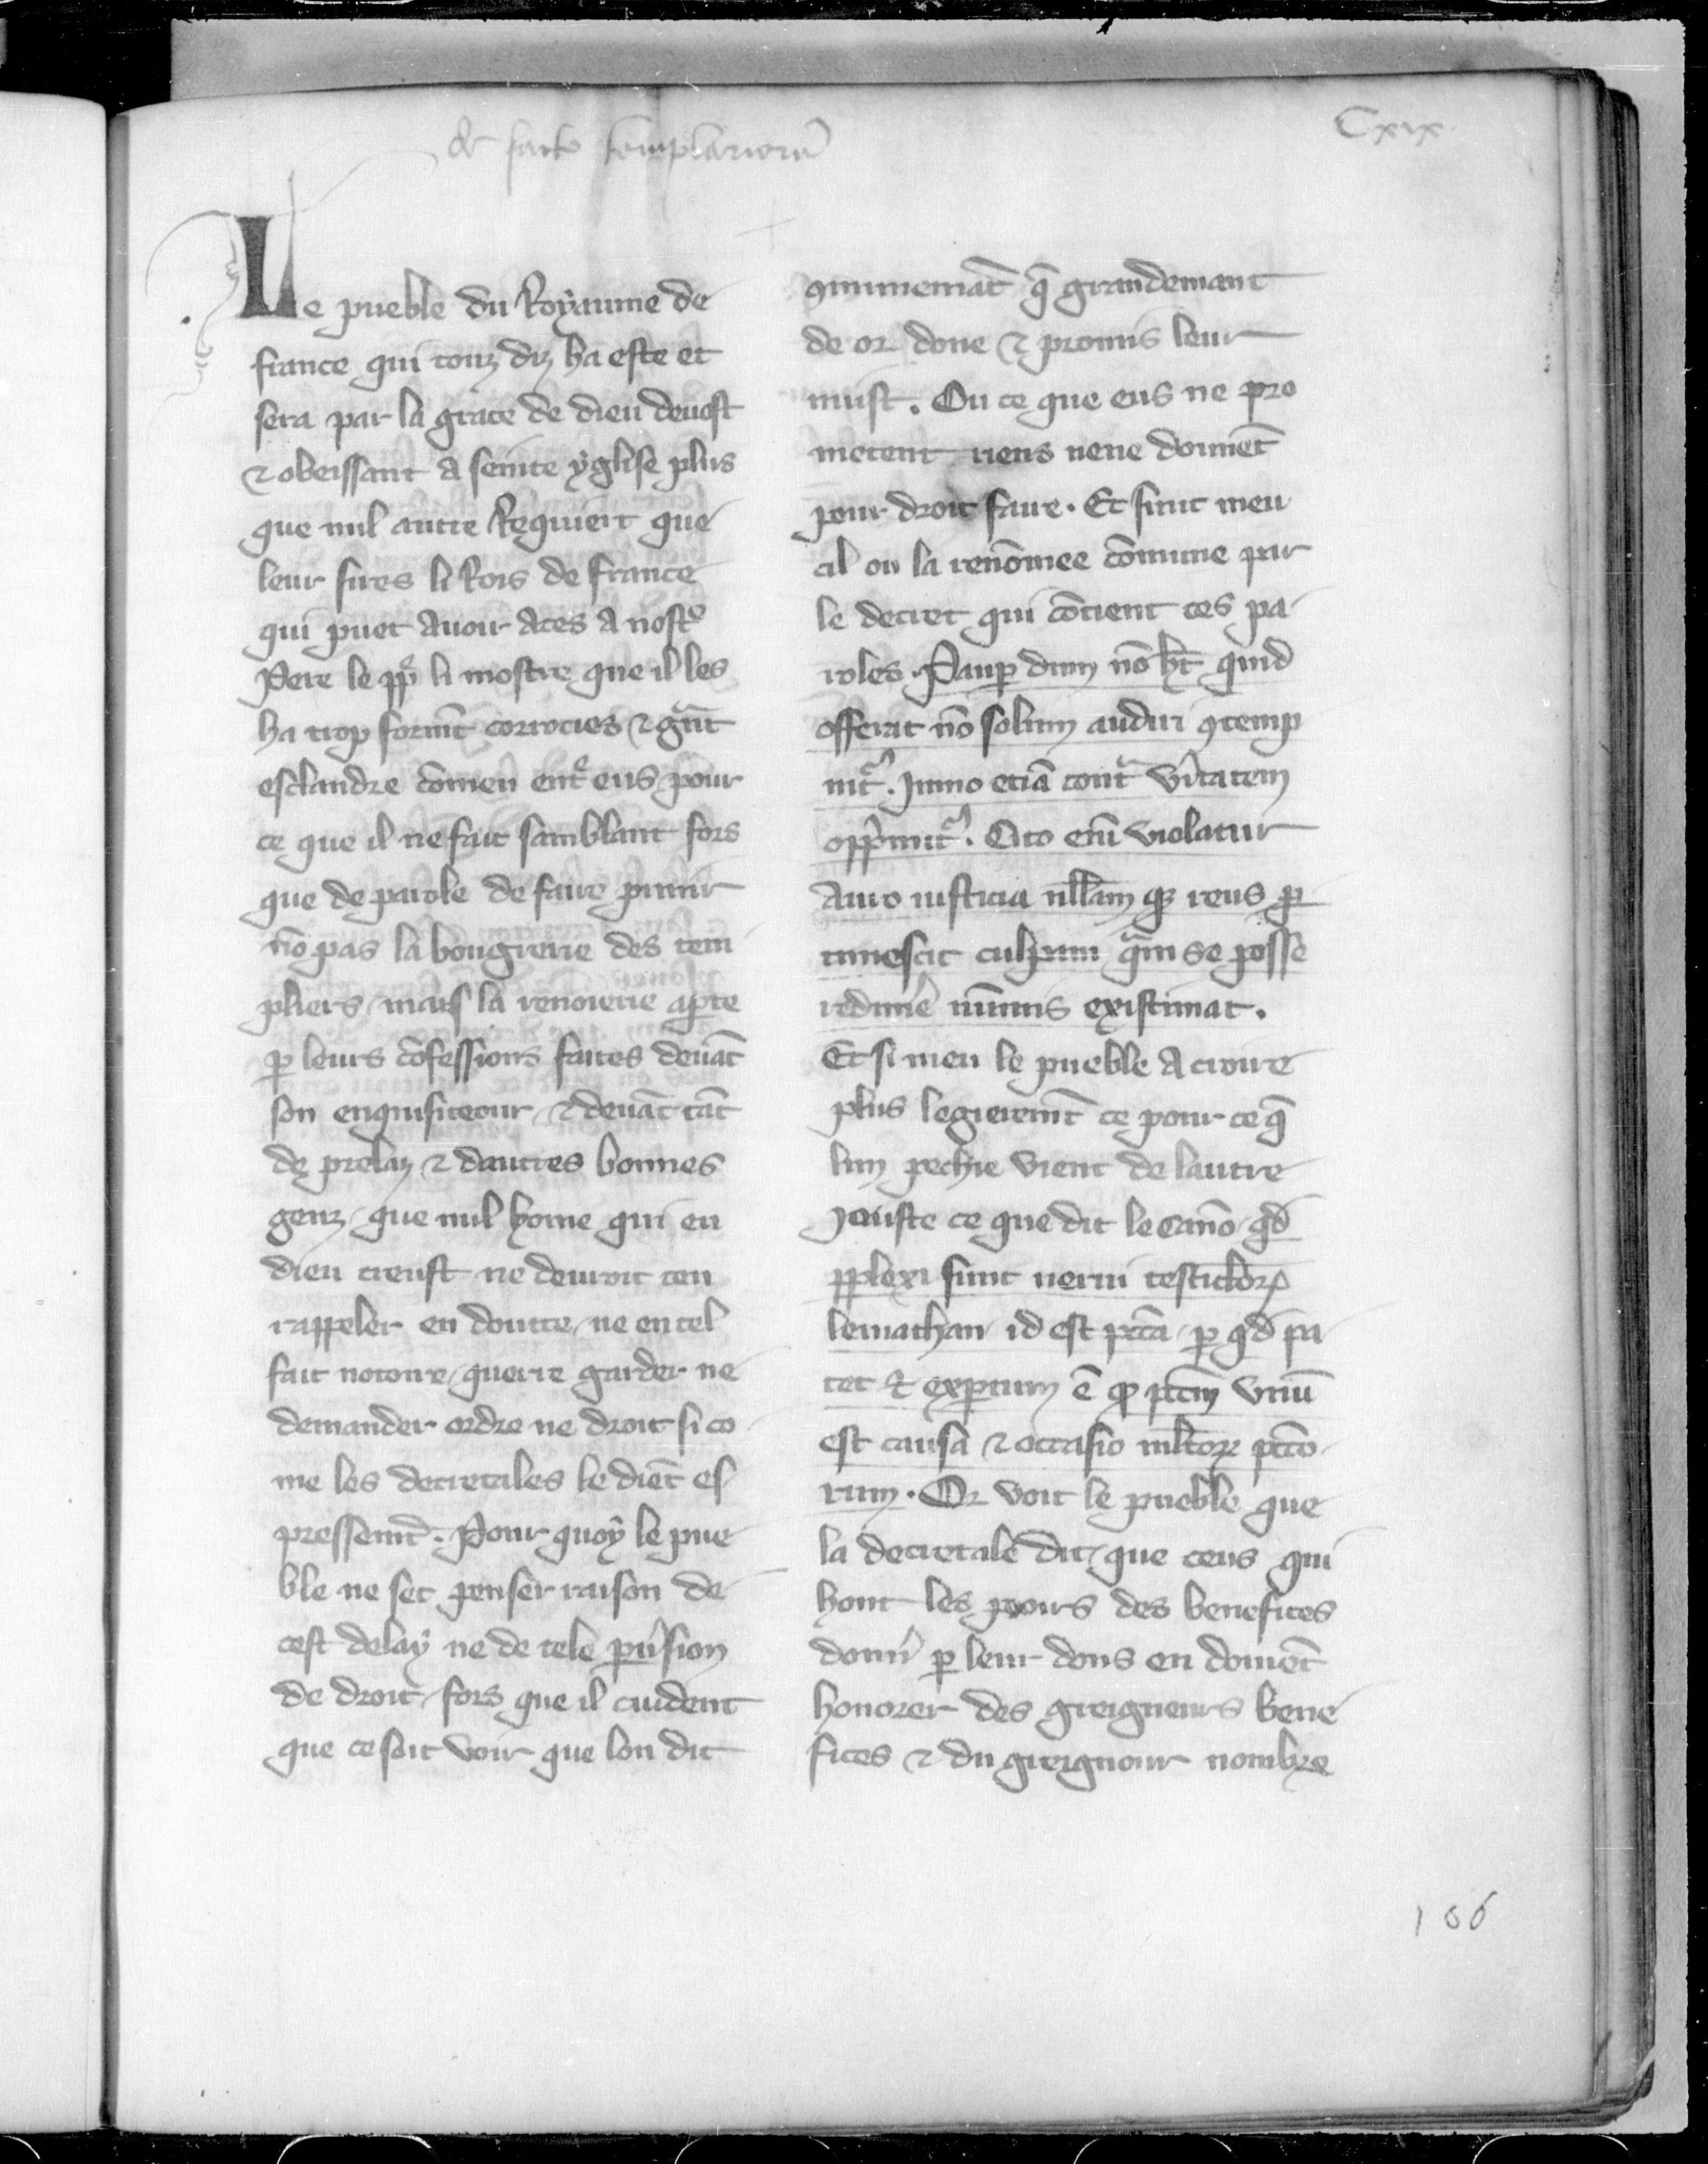 de facto templariorū
Cxix
Le pueble du Royaume de
france qui touz diz ha este et
sera par la grace de dieu devost
⁊ obeissant a seinte yglise plus
que nul autre Requiert que
leur sires li Rois de france
qui puet avoir aces a nostͤ
Pere le pp̄ li mostre que il les
ha trop formēt corrocies ⁊ gͣnt
esclandre cōmeu entͤ eus pour
ce que il ne fait samblant fors
que de parole de faire punir
nō pas la bougrerie des tem
pliers / mais la renoierie aperte
ꝑ leurs cōfessions faites devāt
son enquisiteour / ⁊ devāt tāt
de prelaz ⁊ dautres bonnes
genz / que nul home qui en
dieu creust ne devroit ceu
rappeler en doutte / ne en tel
fait notoire / querre garder ne
demander ordre ne droit si co
me les decretales le diēt es
pressemēt. Pour quoy le pue
ble ne set penser raison de
cest delay ne de tele ꝑv̄sion
de droit / fors que il cuident
que ce soit voir que lon dit
ꝯmunemāt q̄ grandemant
de or done ⁊ promis leur
must. Ou ce que eus ne pro
metent riens nene donnēt
pour droit faire. Et sunt meu
a la renōmee cōmune par
le decret qui cōtient ces pa
roles. Pauꝑ dum nō hꝫ quid
offerat nō solum audiri ꝯtemp
nitͬ. Immo etiā contͣ v̄itatem
opp̄mitͬ. Cito enī violatur
Auro iusticia nllam qꝫ reus ꝑ
timescit culpam qͣm se posse
redimē nūmis existimat.
Et si meu le pueble a croire
plus legieremēt ce pour ce q̄
lun pechie vient de lautre
Jouste ce que dit le canō / qd̄
ꝑplexi sunt nervi testiclorꝝ
leviathan / id est pctā / ꝑ qd̄ pa
tet ⁊ exꝑtum ē ꝙ pctm̄ unū
est causa ⁊ occasio mltorꝝ pctō
rum. Or voit le pueble que
la decretale dit / que ceus qui
hont les poours des benefices
donn̄ ꝑ leur dons en doivēt
honorer des greigneurs bene
fices ⁊ du greignour nombre
106